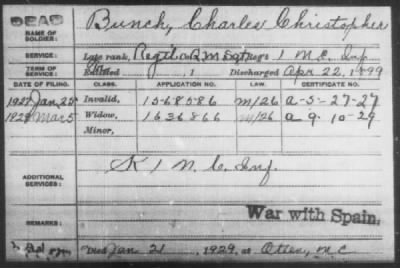 DEAD
NAME OF SOLDIER: Bunch, Charles Christopher
SERVICE: Late rank, Regtl Q.R.M Sgt, Regt 1 N.C. Inf
TERM OF SERVICE: Enlisted , 1 Discharged Apr 22, 1899
DATE OF FILING. CLASS. APPLICATION NO. LAW. CERTIFICATE NO.
1927 Jan 25 Invalid, 1568586 m/26 a-5-27-27
1929 Mar 5 Widow, 1636866 m/26 a 9-10-29
Minor,
ADDITIONAL SERVICES: K 1 N.C. Inf.
War with Spain.
REMARKS:
Died Jan 21, 1929, at N.C.